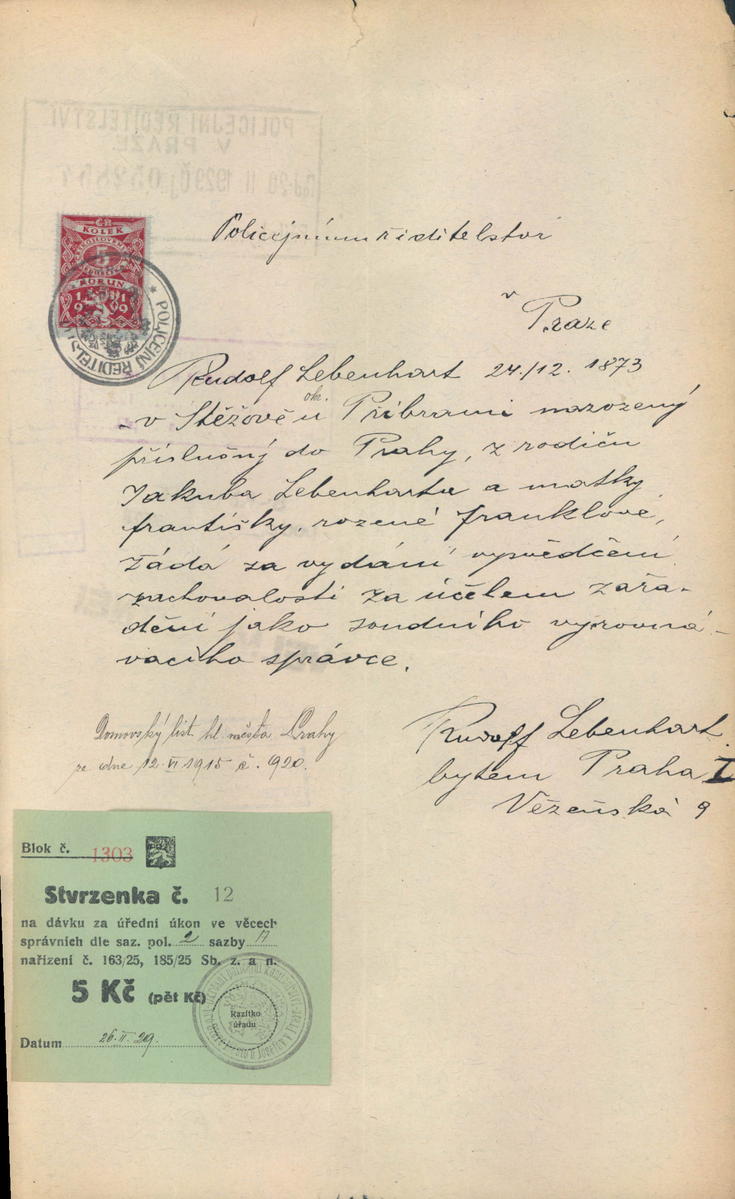 Policejnímu ředitelství
v Praze
KOLEK
5
KORUN
1919
POLICEJNÍ ŘEDITELSTVÍ
Rudolf Lebenhart 24./12. 1873
v Stěžově ok. u Příbrami narozený
příslušný do Prahy, z rodičů
Jakuba Lebenharta a matky
Františky, rozené Franklové,
žádá za vydání vysvědčení
zachovalosti za účelem zařa-
dění jako soudního vyrovná-
vacího správce.
Domovský list hl. města Prahy
ze dne 12. VI 1915 č. 1920.
Rudolf Lebenhart
bytem Praha I
Vězeňská 9
Blok č. 1303
Stvrzenka č. 12
na dávku za úřední úkon ve věcech
správních dle saz. pol. 2 sazby
nařízení č. 163/25, 185/25 Sb. z. a n.
5 Kč (pět Kč)
Razítko
úřadu
Datum 26.II.29.
POLICEJNÍ ŘEDITELSTVÍ
V PRAZE
20 II 1929